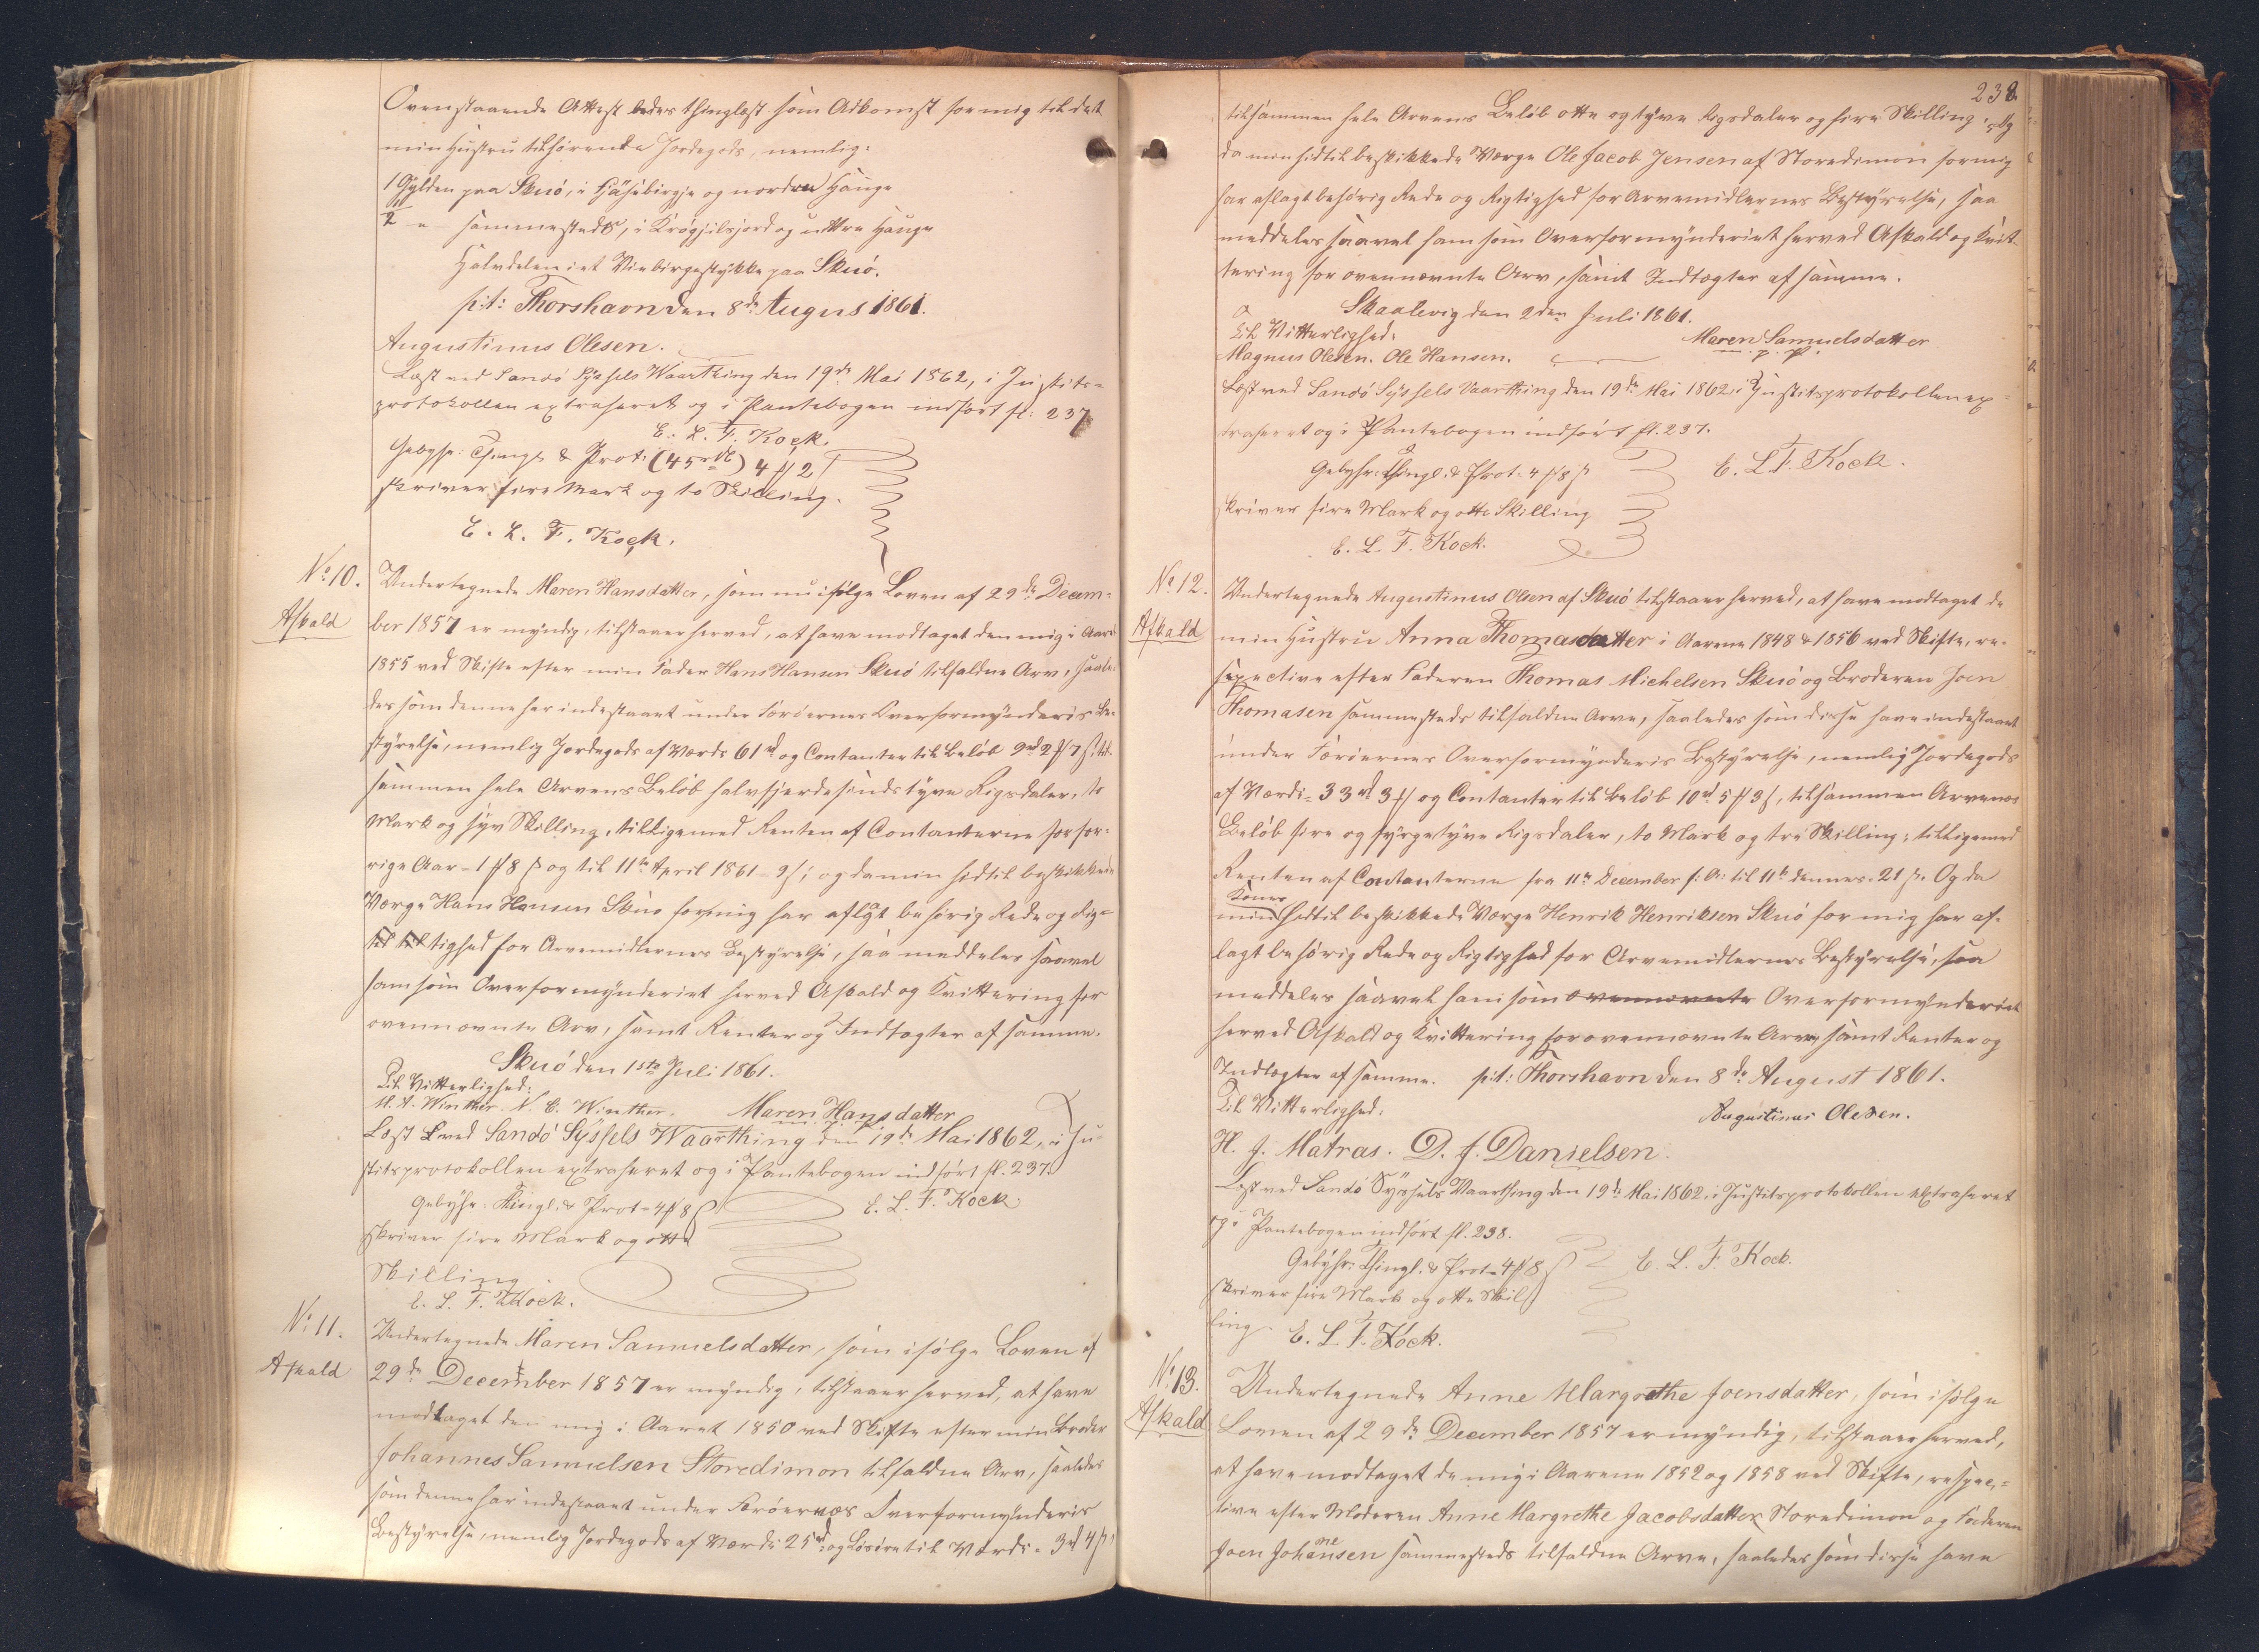 Ovenstaaende Attest bedes thinglæst som Adkomst for mig til det
min Hustru tilhørende Jordegods, nemlig:
1 Gylden paa Skuö, i og nordre Hauge
2 -"- sammesteds, i og uttre Hauge
Halvdelen i et paa Skuö.
p:t: Thorshavn den 8de Augus 1861.
Augustinus Olesen.
Læst ved Sandö Syssels Waarthing den 19de Mai 1862, i Justits=
protokollen extraheret og i Pantebogen indført fl: 237
E. L. F. Kock.
Gebyhr: Thingl. & Prot. (45 rdl) 4 # 2 ß
skriver fire Mark og to Skilling.
E. L. F. Kock.
No. 10.
Afkald
Undertegnede Maren Hansdatter, som nu ifølge Loven af 29de Decem=
ber 1857 er myndig, tilstaaer herved, at have modtaget den mig i Aaret
1855 ved Skifte efter min Fader Hans Hansen Skuö tilfaldne Arv, saale-
des som denne har indestaaet under Færöernes Overformynderis Be-
styrelse, nemlig Jordegods af Værdi 61 rd og Contanter til Beløb 9 rd 2 # 7 ß, til-
sammen hele Arvens Beløb halvfjerdesindstyve Rigsdaler, to
Mark og syv Skilling, tilligemed Renten af Contanterne for for-
rige Aar = 1 # 8 ß og til 11te April 1861 = 9 ß; og da min hidtil beskikkede
Værge Hans Hansen Skuö for mig har aflagt behørig Rede og Rig=
tighed for Arvemidlernes Bestyrelse, saa meddeles saavel
ham som Overformynderiet herved Afkald og Kvittering for
ovennævnte Arv, samt Renter og Indtægter af samme.
Skuö den 1ste Juli 1861.
Til Vitterlighed:
M. A. Winther. N. C. Winther. Maren Hansdatter
m. p. P.
Læst ved Sandö Syssels Waarthing den 19de Mai 1862, i Ju-
stitsprotokollen extraheret og i Pantebogen indført fl. 237.
Gebyhr: Thingl. & Prot = 4 # 8 ß E. L. F. Kock.
skriver fire Mark og otte
Skilling
E. L. F. Kock.
No. 11.
Afkald
Undertegnede Maren Samuelsdatter, som ifølge Loven af
29de December 1857 er myndig, tilstaaer herved, at have
modtaget den mig i Aaret 1850 ved Skifte efter min Broder
Johannes Samuelsen Storedimon tilfaldne Arv, saaledes
som denne har indestaaet under Færöernes Overformynderis
Bestyrelse, nemlig Jordegods af Værdi 25 rd og Løsøre til Værdi = 3 rd 4 ß,
238
tilsammen hele Arvens Beløb otte og tyve Rigsdaler og fire Skilling; og
da min hidtil beskikkede Værge Ole Jacob Jensen af Storedimon for mig
har aflagt behørig Rede og Rigtighed for Arvemidlernes Bestyrelse, saa
meddeles saavel ham som Overformynderiet herved Afkald og Kvit-
tering for ovennævnte Arv, samt Indtægter af samme.
Skaalevig den 2den Juli 1861.
Til Vitterlighed: Maren Samuelsdatter
Magnus Olesen. Ole Hansen. m. p. P.
Læst ved Sandö Syssels Vaarthing den 19de Mai 1862, i Justitsprotokollen ex=
traheret og i Pantebogen indført fl. 237.
Gebyhr: Thingl. & Prot = 4 # 8 ß E. L. F. Kock.
skriver fire Mark og otte Skilling
E. L. F. Kock.
No. 12.
Afkald
Undertegnede Augustinus Olsen af Skuö tilstaaer herved, at have modtaget de
min Hustru Anna Thomasdatter i Aarene 1848 & 1856 ved Skifte, re-
spective efter Faderen Thomas Michelsen Skuö og Broderen Joen
Thomasen sammesteds tilfaldne Arve, saaledes som disse have indestaaet
under Færöernes Overformynderis Bestyrelse, nemlig Jordegods
af Værdi = 33 rd 3 # og Contanter til Beløb 10 rd 5 # 3 ß, tilsammen Arvenes
Beløb fire og fyrgetyve Rigsdaler, to Mark og tre Skilling; tilligemed
Renten af Contanterne fra 11te December f: A: til 11te dennes. 21 ß. Og da
Kones
min hidtil beskikkede Værge Henrik Henriksen Skuö for mig har af-
lagt behørig Rede og Rigtighed for Arvemidlernes Bestyrelse, saa
meddeles saavel ham som ovennævnte Overformynderiet
herved Afkald og Kvittering for ovennævnte Arv, samt Renter og
Indtægter af samme. p:t: Thorshavn den 8de August 1861.
Til Vitterlighed: Augustinus Olesen.
H. J. Matras. D. J. Danielsen.
Læst ved Sandö Syssels Vaarthing den 19de Mai 1862, i Justitsprotokollen extraheret
og i Pantebogen indført fl. 238.
Gebyhr: Thingl. & Prot = 4 # 8 ß E. L. F. Kock.
skriver fire Mark og otte Skil
ling. E. L. F. Kock.
No. 13.
Afkald
Undertegnede Anne Margrethe Joensdatter, som ifølge
Loven af 29de December 1857 er myndig, tilstaaer herved,
at have modtaget de mig i Aarene 1852 og 1858 ved Skifte, respec-=
tive efter Moderen Anne Margrethe Jacobsdatter Storedimon og Faderen
Joen Johannesen sammesteds tilfaldne Arve, saaledes som disse have